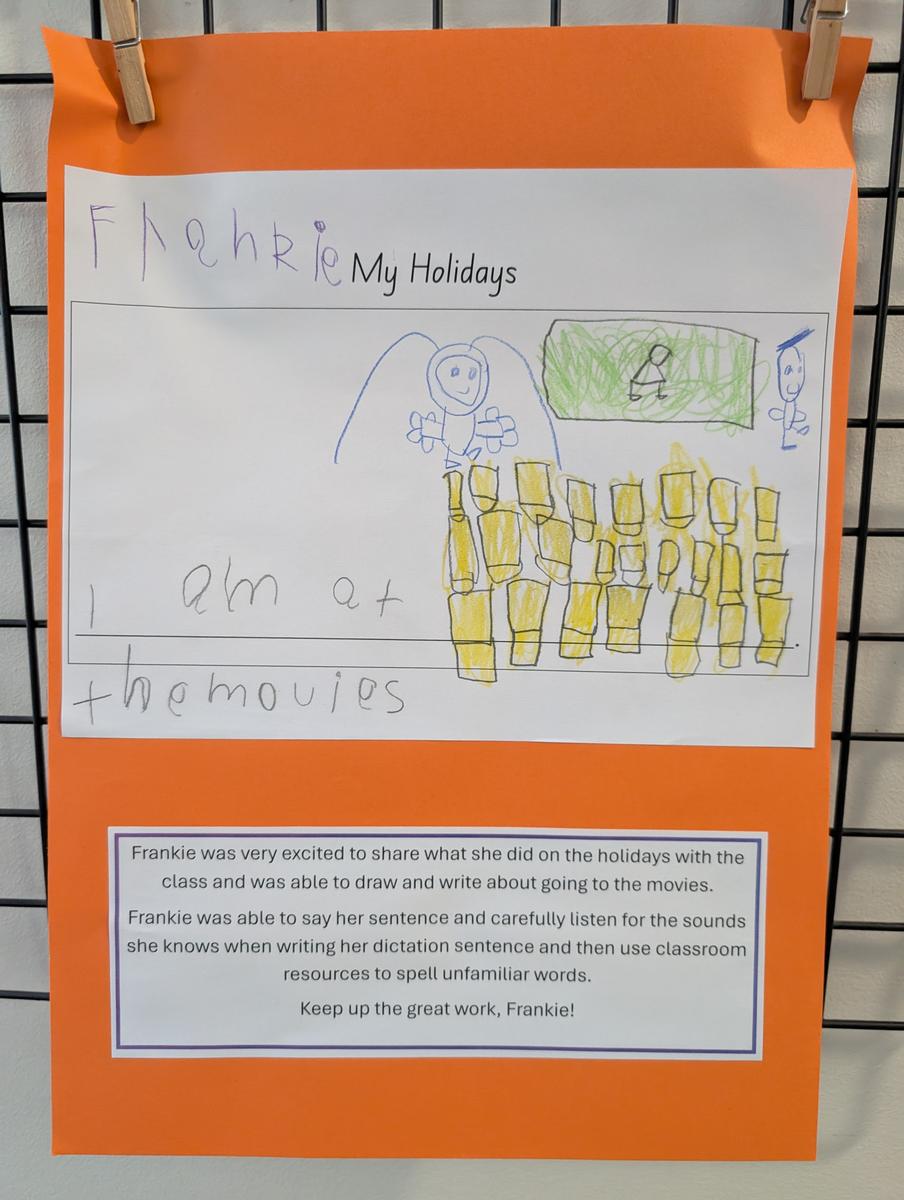 Frankie My Holidays
I am at
the movies
Frankie was very excited to share what she did on the holidays with the
class and was able to draw and write about going to the movies.
Frankie was able to say her sentence and carefully listen for the sounds
she knows when writing her dictation sentence and then use classroom
resources to spell unfamiliar words.
Keep up the great work, Frankie!